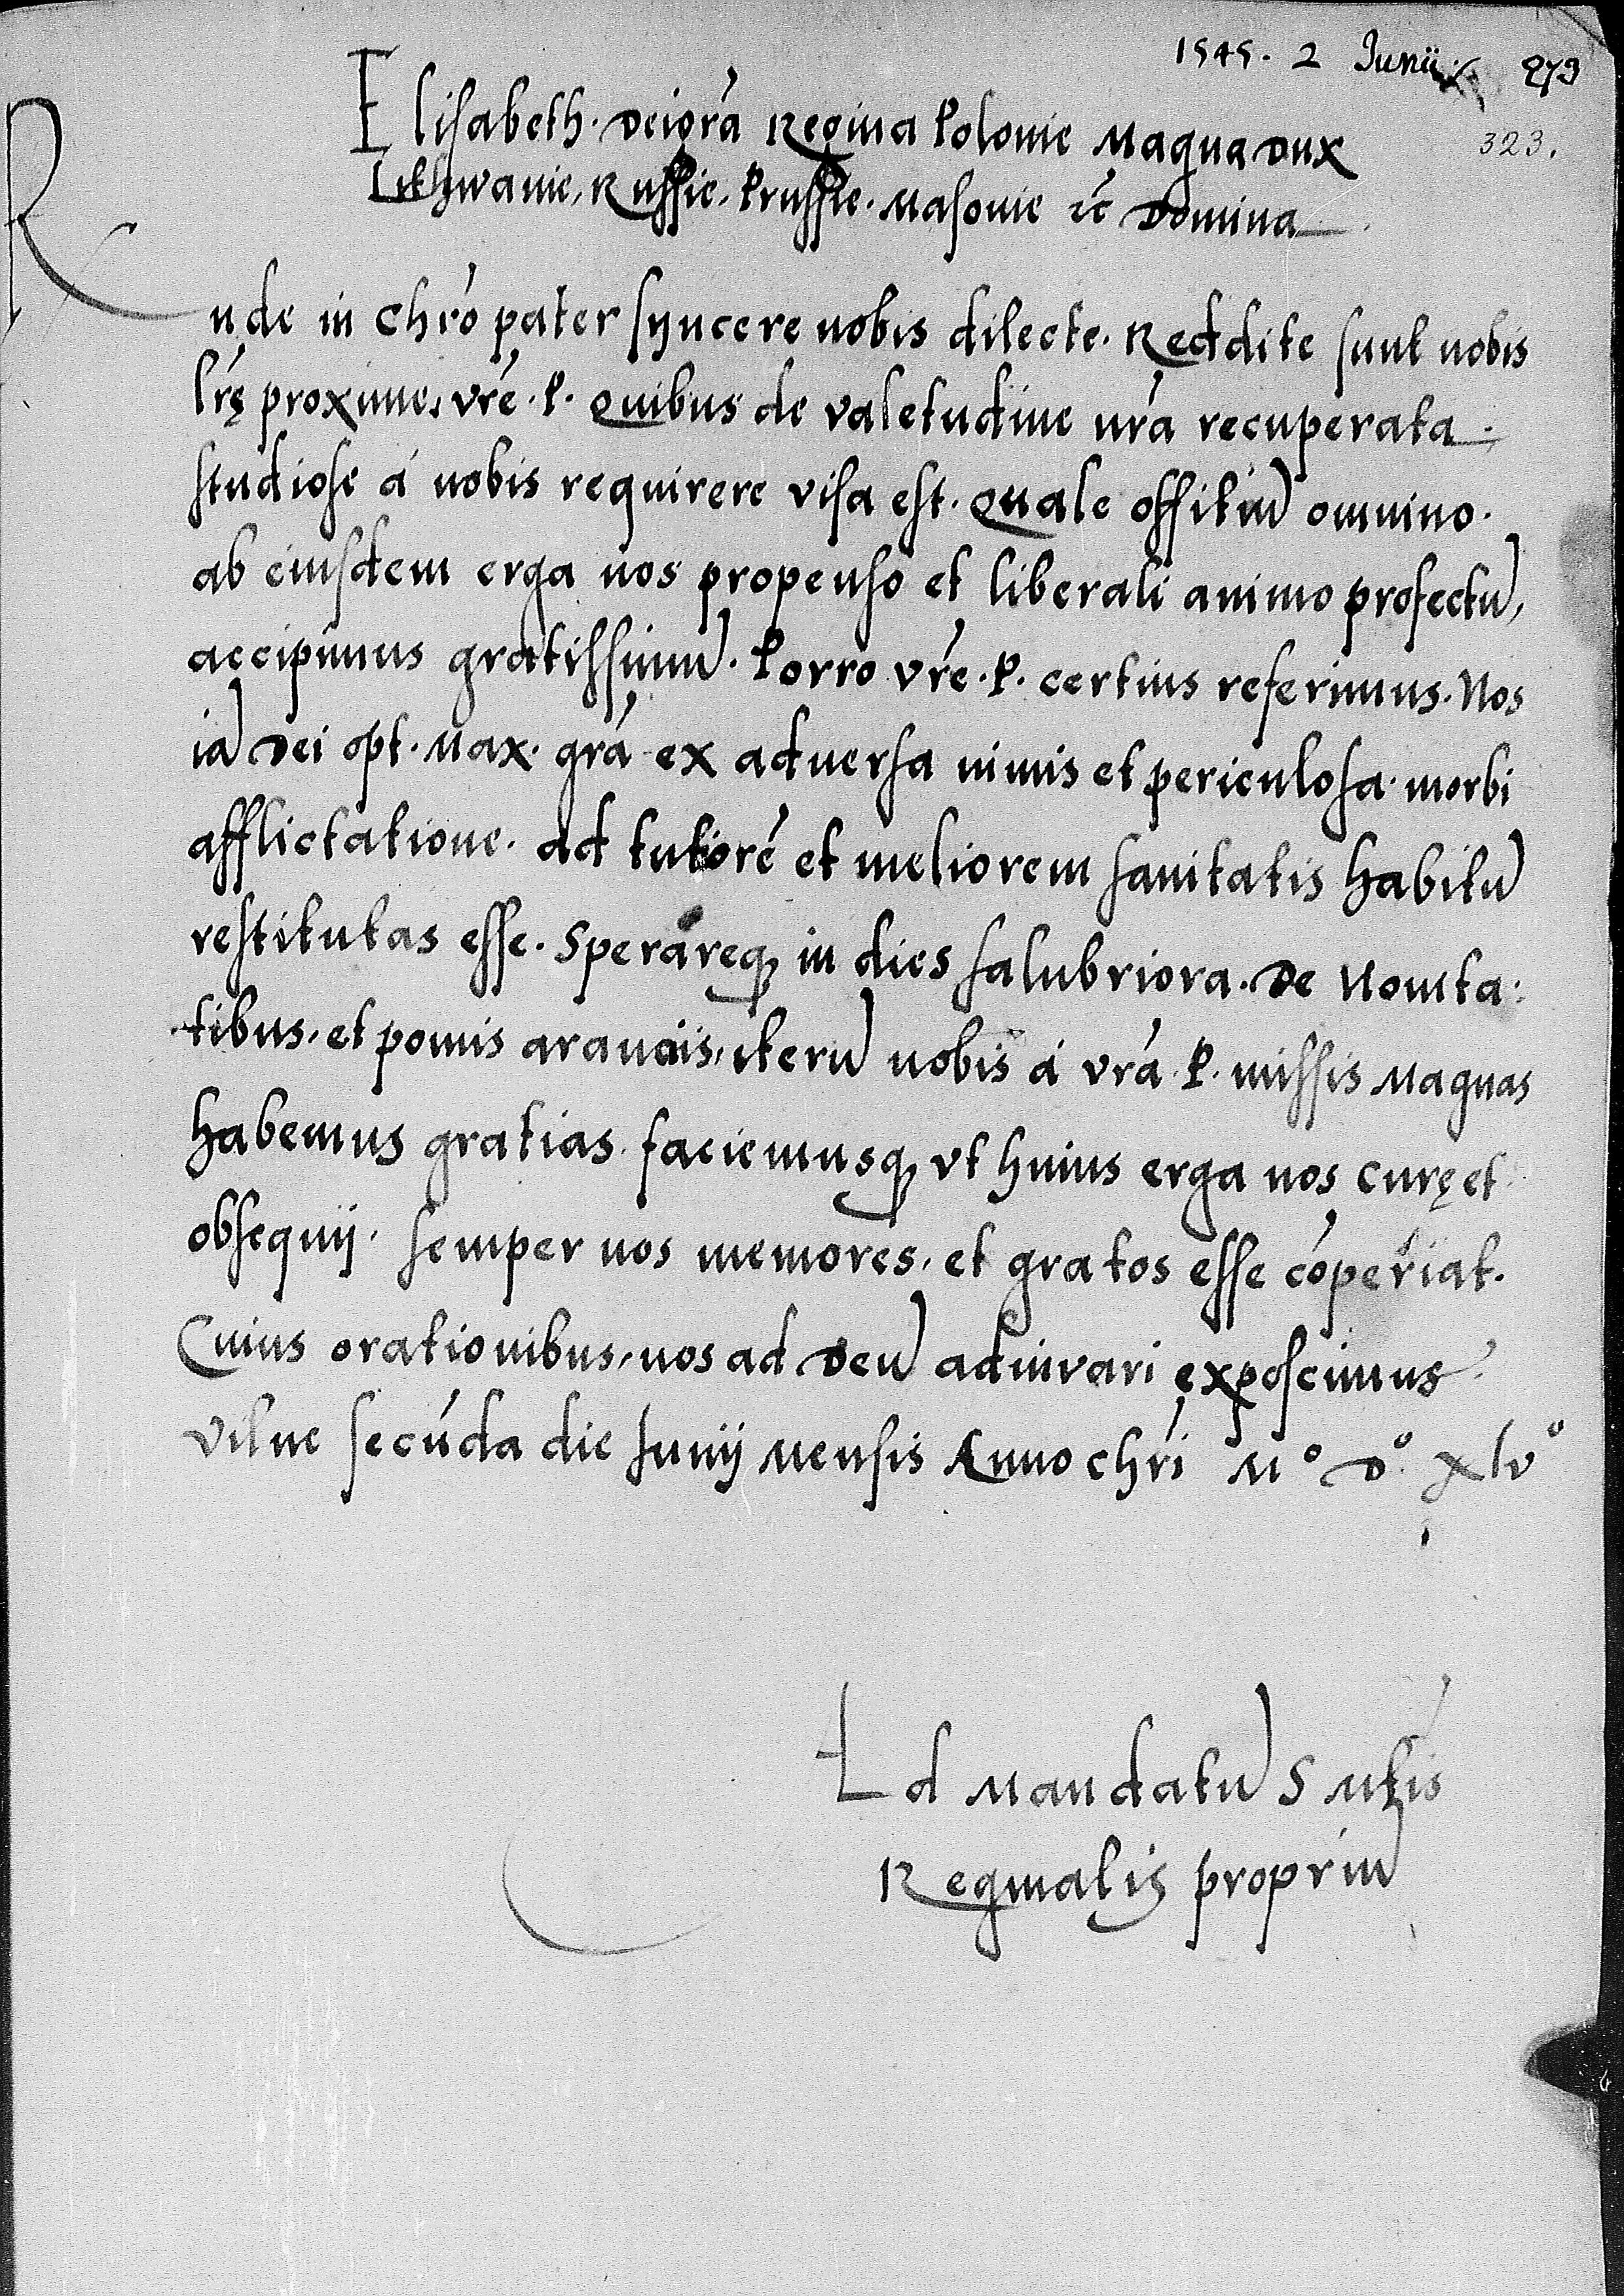 1545. 2 Junii 273
323.
Elisabeth. Dei grã Regina Polonie Magna Dux
Lithwanie, Russie. Prussie. Masovie ec Domina
Rnde in Chrõ pater syncere nobis dilecte. Reddite sunt nobis
lrę proxime, vrẽ. P. Quibus de valetudine nrã recuperata.
studiose á nobis requirere visa est. Quale offitiũ omnino.
ab eiusdem erga nos propenso et liberali animo profectũ,
accipimus gratissimũ. Porro vrẽ. P. certius referimus. Nos
iã Dei opt. Max. grã ex aduersa nimis et periculosa morbi
afflictatione. ad tutiorẽ et meliorem sanitatis habitũ
restitutas esse. Speráreq; in dies salubriora. De Nouita:
tibus. et pomis aranciis, iterũ nobis á vrã. P. missis Magnas
habemus gratias faciemusq; vt huius erga nos curę et
obsequij. semper nos memores. et gratos esse cõperiat.
Cuius orationibus, nos ad Deũ adiuvari exposcimus
Vilne secũda die Junij Mensis Anno chrĩ M° D° xlv°
Ad Mandatũ S Mtis
Reginalis propriũ